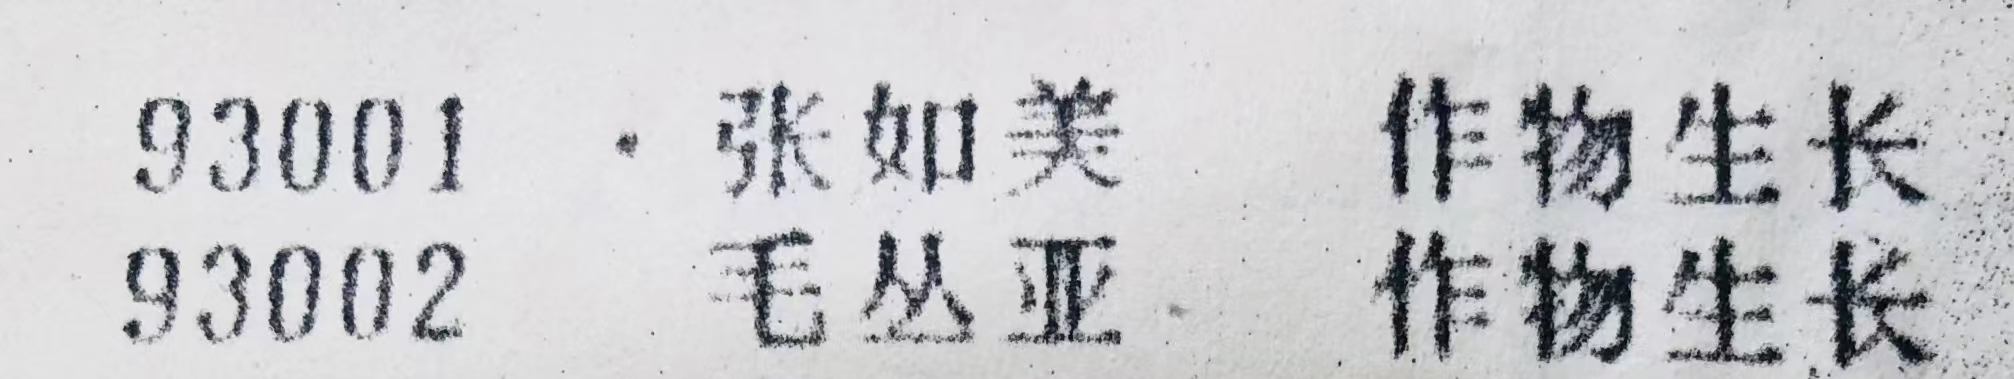 93001 张如美 作物生长
93002 毛丛亚 作物生长